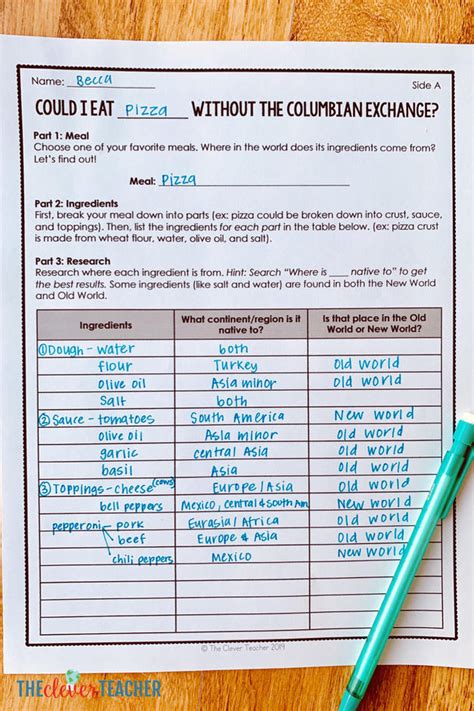 Name: Becca Side A
COULD I EAT Pizza WITHOUT THE COLUMBIAN EXCHANGE?
Part 1: Meal
Choose one of your favorite meals. Where in the world does its ingredients come from?
Let's find out!
Meal: Pizza
Part 2: Ingredients
First, break your meal down into parts (ex: pizza could be broken down into crust, sauce,
and toppings). Then, list the ingredients for each part in the table below. (ex: pizza crust
is made from wheat flour, water, olive oil, and salt).
Part 3: Research
Research where each ingredient is from. Hint: Search "Where is ____ native to" to get
the best results. Some ingredients (like salt and water) are found in both the New World
and Old World.
Ingredients What continent/region is it native to? Is that place in the Old World or New World?
① Dough - water both
flour Turkey Old World
olive oil Asia minor Old World
Salt both
② Sauce - tomatoes South America New World
olive oil Asia minor Old World
garlic central Asia Old World
basil Asia Old World
③ Toppings - cheese (cows) Europe/Asia Old World
bell peppers Mexico, Central & South Am New World
pepperoni pork Eurasia/Africa Old World
beef Europe & Asia Old World
chili peppers Mexico New World
© The Clever Teacher 2019
THE clever TEACHER